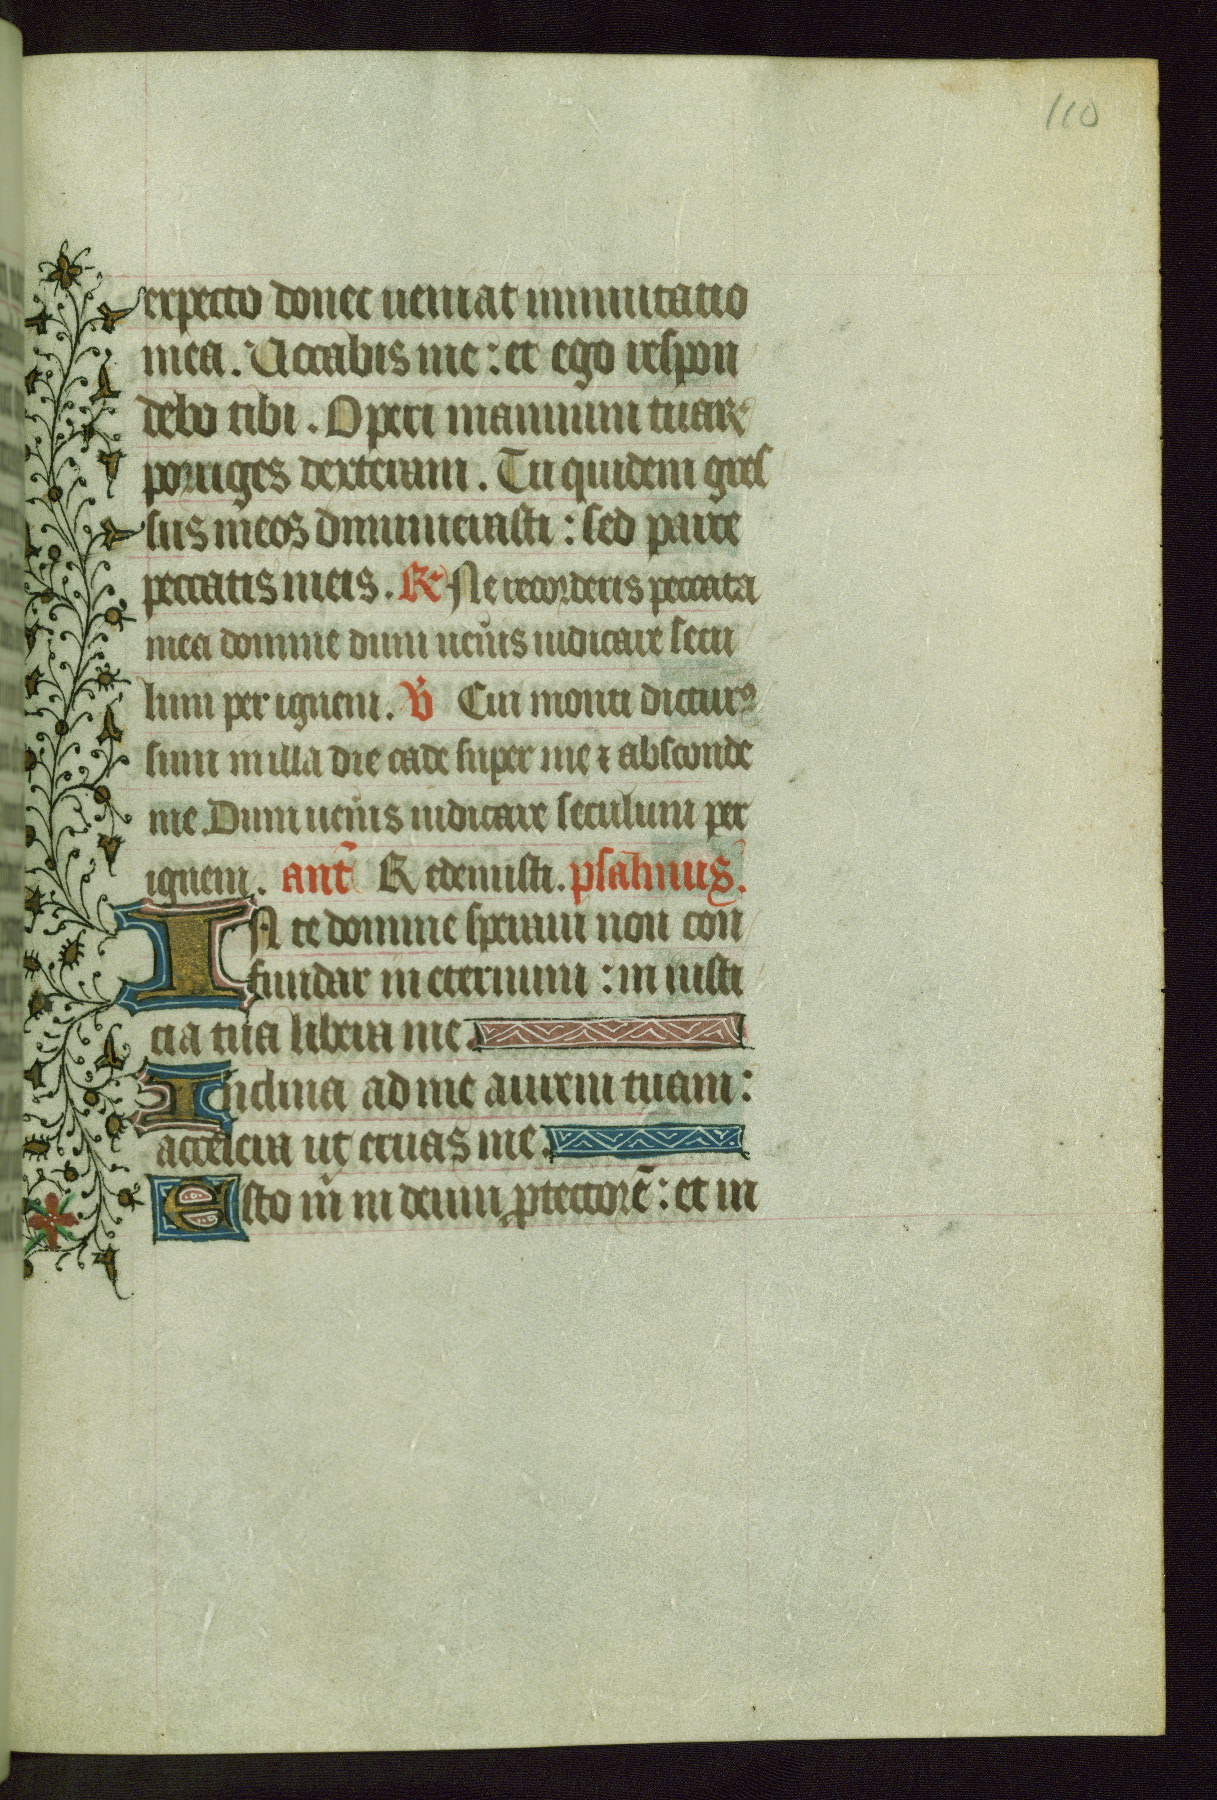 110
expecto donec ueniat inmutatio
mea. Uocabis me: et ego respon
debo tibi. Operi manuum tuarꝝ
porriges dexteram. Tu quidem gres
sus meos dinumerasti: sed parce
peccatis meis. ℟ Ne recorderis peccata
mea domine dum uen̄is iudicare secu
lum per ignem. ℣ Cui monti dicturꝰ
sum in illa die cade super me ⁊ absconde
me Dum uen̄is iudicare seculum per
ignem. ant̄ Redemisti. psalmus.
IN te domine speraui non con
fundar in eternum: in iusti
cia tua libera me.
Inclina ad me aurem tuam:
accelera ut eruas me.
Esto m̄ in deum ꝓtectorē: et in